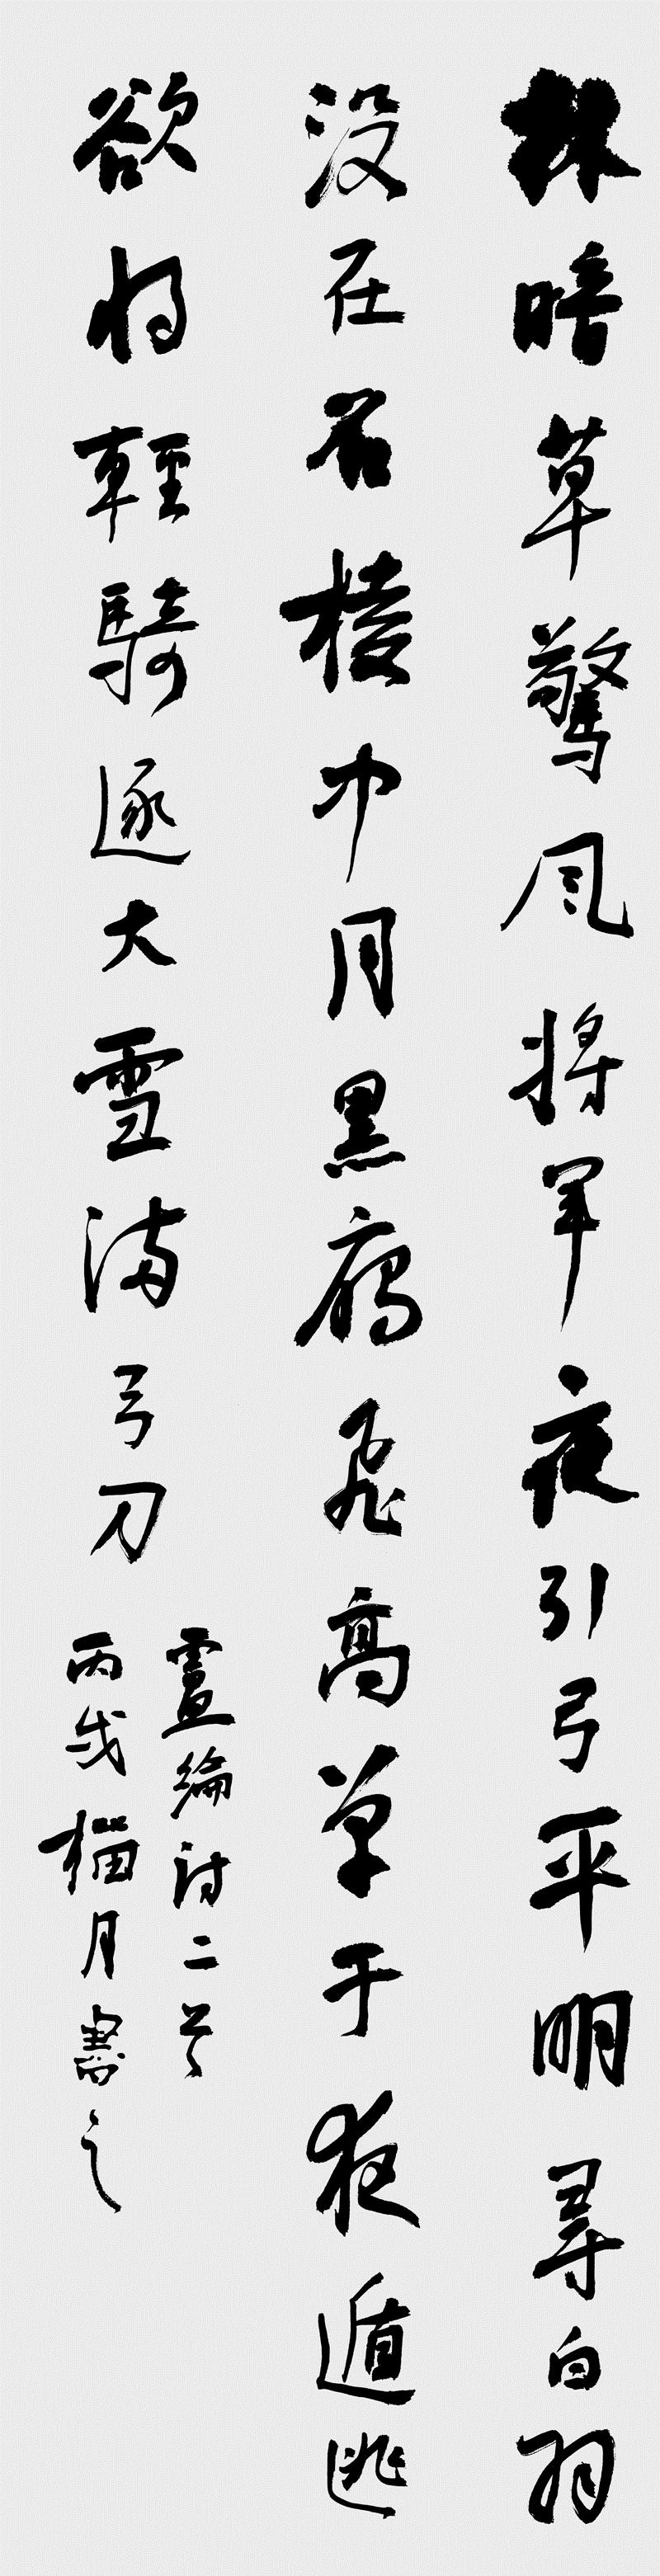 林暗草驚風將軍夜引弓平明尋白羽
没在石棱中月黑雁飛高單于夜遁逃
欲將輕騎逐大雪滿弓刀
盧綸詩二首
丙戌猫月書之